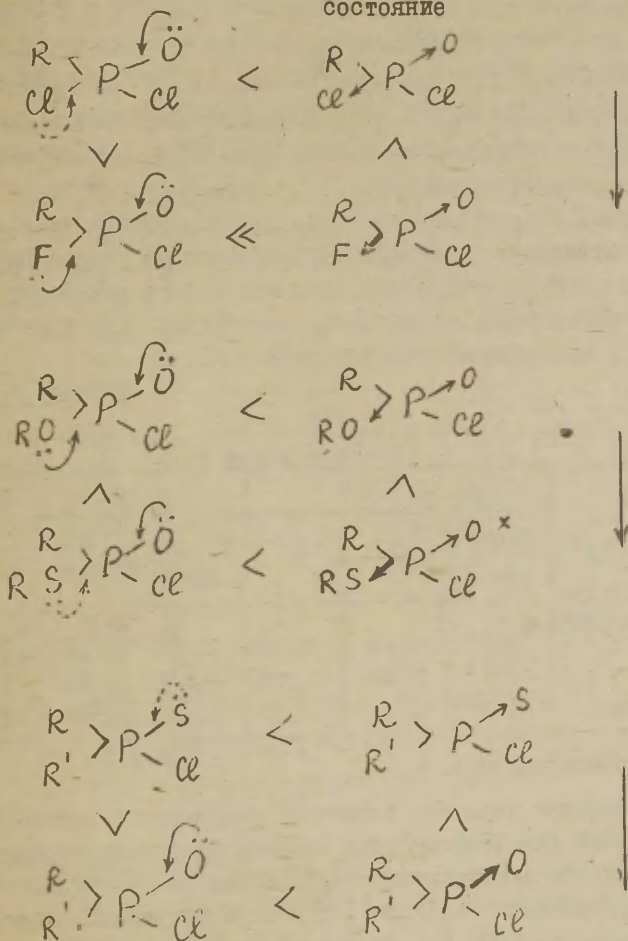 состояние
R Cl > P Ö Cl < R Cl > P O Cl
∨ ∧
R F > P Ö Cl ≪ R F > P O Cl
R RO > P Ö Cl < R RO > P O Cl
∧ ∧
R RS > P Ö Cl < R RS > P O x Cl
R R' > P S Cl < R R' > P S Cl
∨ ∧
R R' > P Ö Cl < R R' > P O Cl